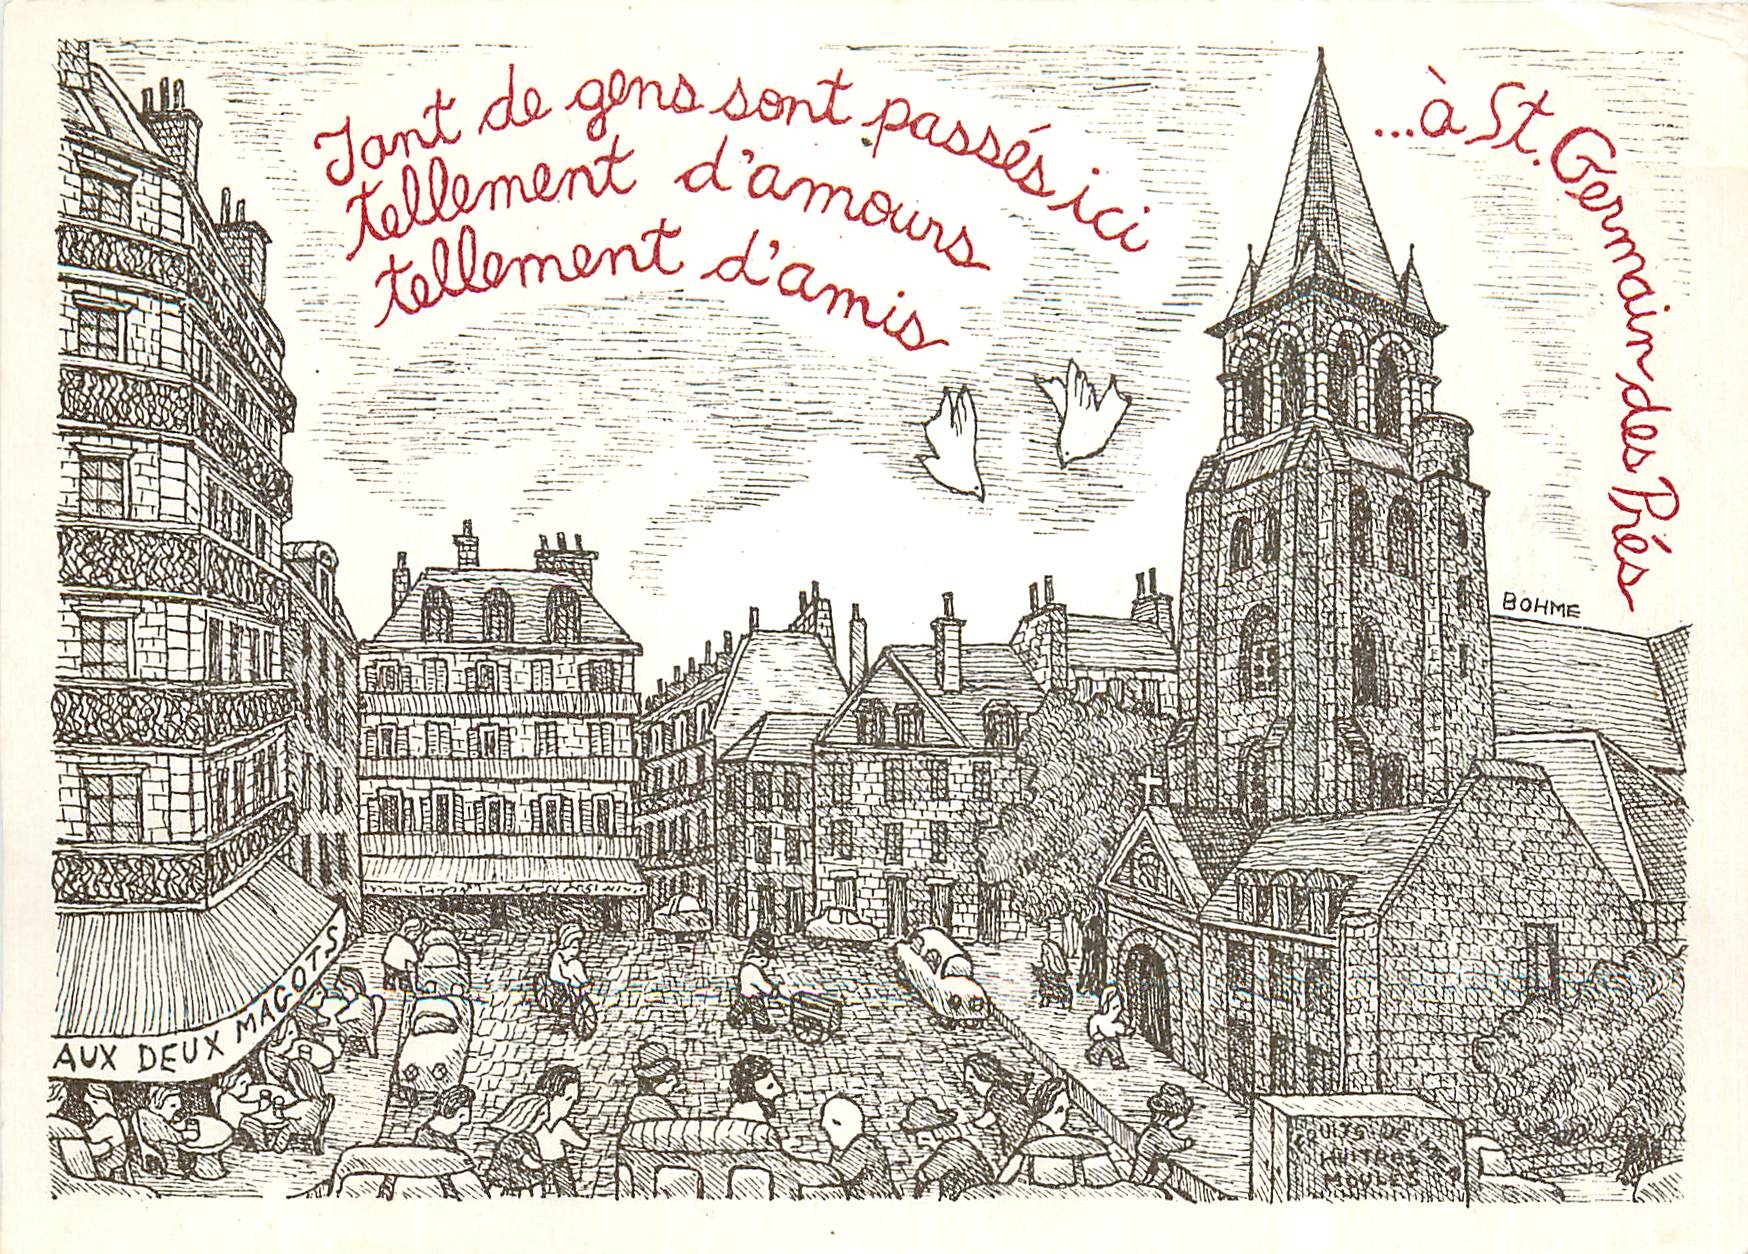 Tant de gens sont passés ici
tellement d'amours
tellement d'amis
...à St. Germain des Prés
BOHME
AUX DEUX MAGOTS
HUITRES
MOULES